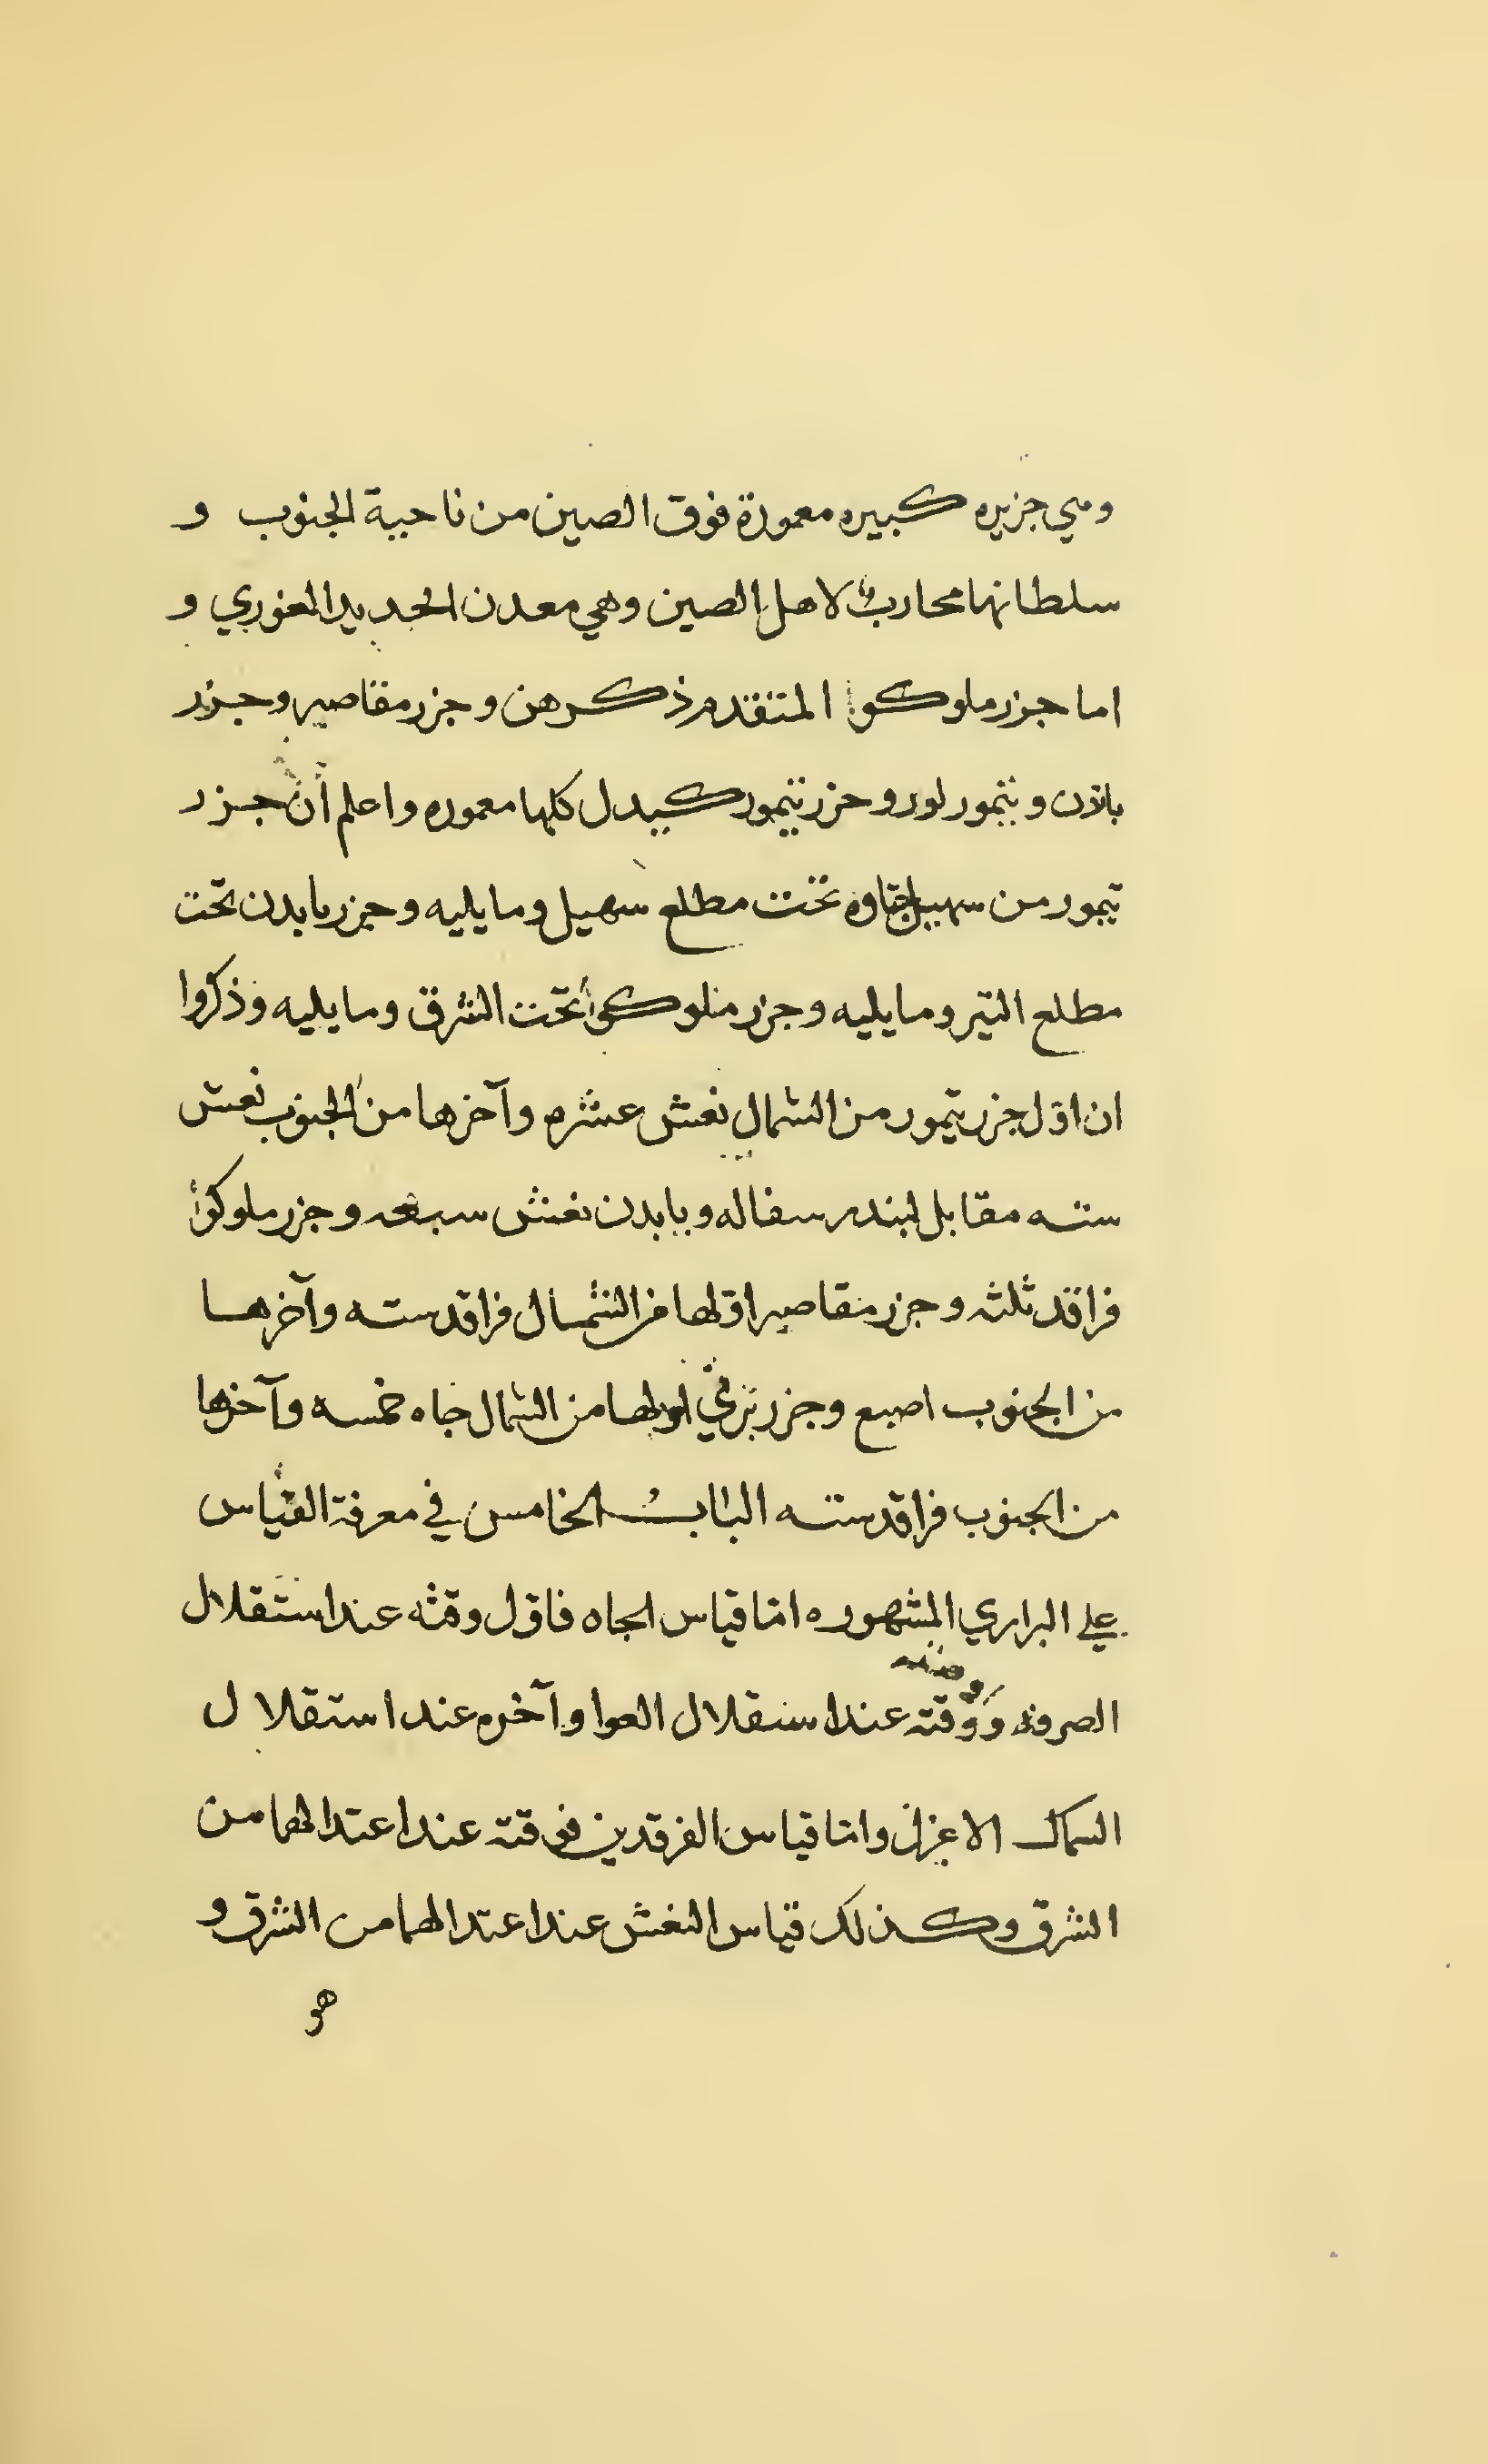 وهي جزيره كبيره معمورة فوق الصين من ناحية الجنوب و
سلطانها محارب لاهل الصين وهي معدن الحديد الغوري و
اما جزر ملوكوا المتقدم ذكرهن وجزر مقاصير وجزر
باندن وتيمور لور وجزر تيمور كيدل كلها معموره واعلم ان جزر
تيمور من سهيل جاوه تحت مطلع سهيل وما يليه وجزر بابدن تحت
مطلع التير وما يليه وجزر ملوكوا تحت الشرق وما يليه وذكروا
ان اول جزر تيمور من الشمال نعش عشره وآخرها من الجنوب نعش
سته مقابل لبندر سفاله وبابدن نعش سبعه وجزر ملوكوا
فراقد ثلثه وجزر مقاصير اولها من الشمال فراقد سته وآخرها
من الجنوب اصبع وجزر برني اولها من الشمال جاه خمسه وآخرها
من الجنوب فراقد سته الباب الخامس في معرفة القياس
علي البراري المشهوره اما قياس الجاه فاول وقته عند استقلال
الصرفه ووقته عند استقلال العوا وآخره عند استقلال
السماك الاعزل واما قياس الفرقدين فوقته عند اعتدالهما من
الشرق وكذلك قياس النعش عند اعتدالهما من الشرق و
هو